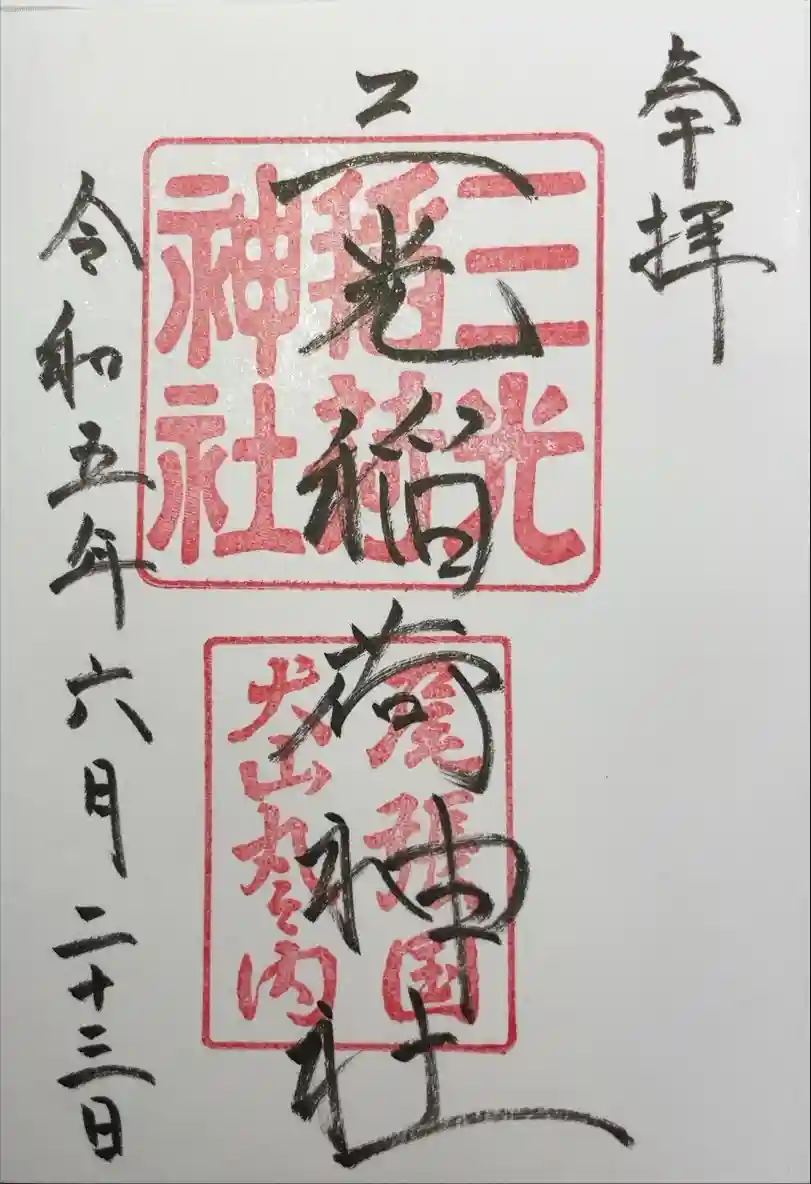 奉拝
三光稲荷神社
三光
稲荷
神社
尾張国
犬山丸之内
令和五年六月二十三日